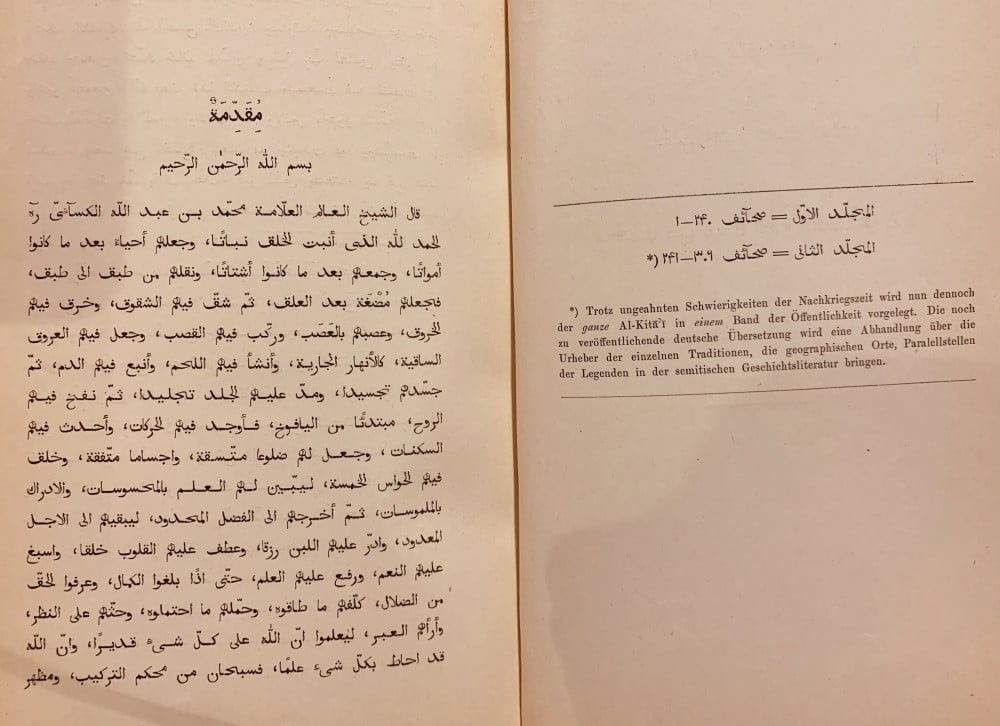 مُقَدِّمَةٌ
بسم الله الرّحمٰن الرّحيم
قال الشيخ العالم العلّامة محمّد بن عبد الله الكسآئىّ ره
الحمد لله الذى أنبت الخلق نباتًا، وجعلهم أحياءً بعد ما كانوا
أمواتًا، وجمعهم بعد ما كانوا أشتاتًا، ونقلهم من طبق الى طبق،
فجعلهم مُضْغَة بعد العلق، ثمّ شقّ فيهم الشقوق، وخرق فيهم
الخروق، وعصبهم بالعَصَب، وركّب فيهم القصب، وجعل فيهم العروق
الساقية، كالأنهار الجارية، وأنشأ فيهم اللحم، وأنبع فيهم الدم، ثمّ
جسّدهم تجسيدا، ومدّ عليهم الجلد تجليدا، ثمّ نفخ فيهم
الروح، مبتدئًا من اليافوخ، فأوجد فيهم الحركات، وأحدث فيهم
السكنات، وجعل لهم ضلوعا متّسقة، واجساما متّفقة، وخلق
فيهم الحواس الخمسة، ليبّين لهم العلم بالمحسوسات، والادراك
بالملموسات، ثمّ أخرجهم الى الفضل المحدود، ليبقيهم الى الاجل
المعدود، وادرّ عليهم اللبن رزقا، وعطف عليهم القلوب خلقا، واسبغ
عليهم النعم، ورفع عليهم العلم، حتّى اذًا بلغوا الكمال، وعرفوا الحقّ
من الضلال، كلّفهم ما طاقوه، وحمّلهم ما احتملوه، وحثّهم على النظر،
وأرأهم العبر، ليعلموا انّ الله على كلّ شىء قديرًا، وانّ الله
قد احاط بكلّ شىء علمًا، فسبحان من محكم التركيب، ومظهر
المجلّد الاوّل = صحآئف ٢۴٠—١
المجلّد الثانى = صحآئف ٣٠٩—٢۴١ (*
*) Trotz ungeahnten Schwierigkeiten der Nachkriegszeit wird nun dennoch
der ganze Al-Kitā'ī in einem Band der Öffentlichkeit vorgelegt. Die noch
zu veröffentlichende deutsche Übersetzung wird eine Abhandlung über die
Urheber der einzelnen Traditionen, die geographischen Orte, Paralellstellen
der Legenden in der semitischen Geschichtsliteratur bringen.